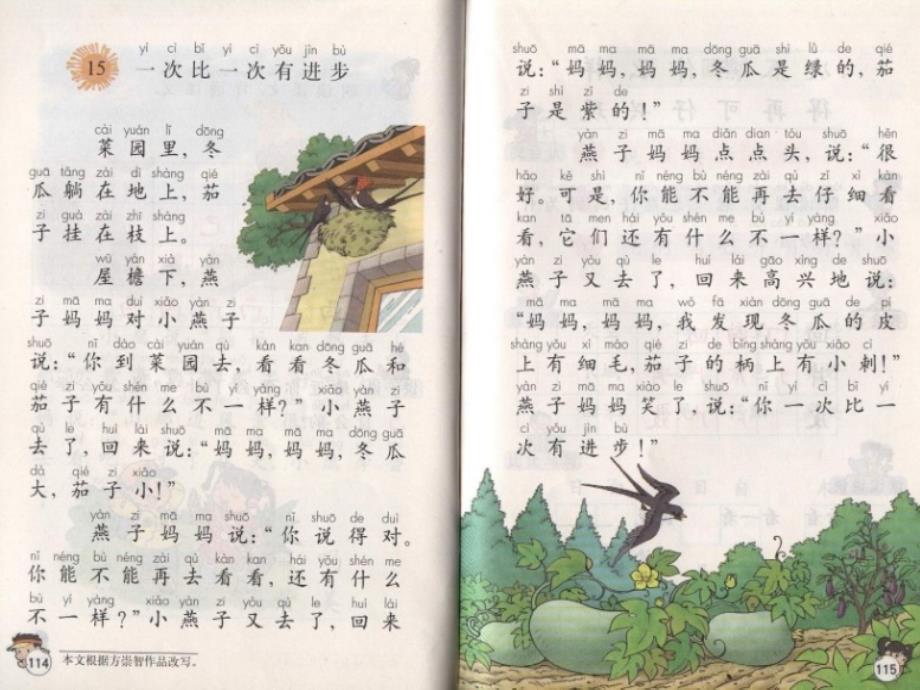 yí cì bǐ yí cì yǒu jìn bù
15 一次比一次有进步
cài yuán lǐ dōng
菜园里，冬
guā tǎng zài dì shàng qié
瓜躺在地上，茄
zi guà zài zhī shàng
子挂在枝上。
wū yán xià yàn
屋檐下，燕
zi mā ma duì xiǎo yàn zi
子妈妈对小燕子
shuō nǐ dào cài yuán qù kàn kan dōng guā hé
说：“你到菜园去，看看冬瓜和
qié zi yǒu shén me bù yí yàng xiǎo yàn zi
茄子有什么不一样？”小燕子
qù le huí lái shuō mā ma mā ma dōng guā
去了，回来说：“妈妈，妈妈，冬瓜
dà qié zi xiǎo
大，茄子小！”
yàn zi mā ma shuō nǐ shuō de duì
燕子妈妈说：“你说得对。
nǐ néng bù néng zài qù kàn kan hái yǒu shén me
你能不能再去看看，还有什么
bù yí yàng xiǎo yàn zi yòu qù le huí lái
不一样？”小燕子又去了，回来
114 本文根据方崇智作品改写。
shuō mā ma mā ma dōng guā shì lǜ de qié
说：“妈妈，妈妈，冬瓜是绿的，茄
zi shì zǐ de
子是紫的！”
yàn zi mā ma diǎn dian tóu shuō hěn
燕子妈妈点点头，说：“很
hǎo kě shì nǐ néng bù néng zài qù zǐ xì kàn
好。可是，你能不能再去仔细看
kan tā men hái yǒu shén me bù yí yàng xiǎo
看，它们还有什么不一样？”小
yàn zi yòu qù le huí lái gāo xìng de shuō
燕子又去了，回来高兴地说：
mā ma mā ma wǒ fā xiàn dōng guā de pí
“妈妈，妈妈，我发现冬瓜的皮
shàng yǒu xì máo qié zi de bǐng shàng yǒu xiǎo cì
上有细毛，茄子的柄上有小刺！”
yàn zi mā ma xiào le shuō nǐ yí cì bǐ yí
燕子妈妈笑了，说：“你一次比一
cì yǒu jìn bù
次有进步！”
115